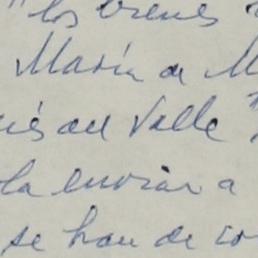 "los bienes
María de M
és del Valle"
la enviar a
se han de co